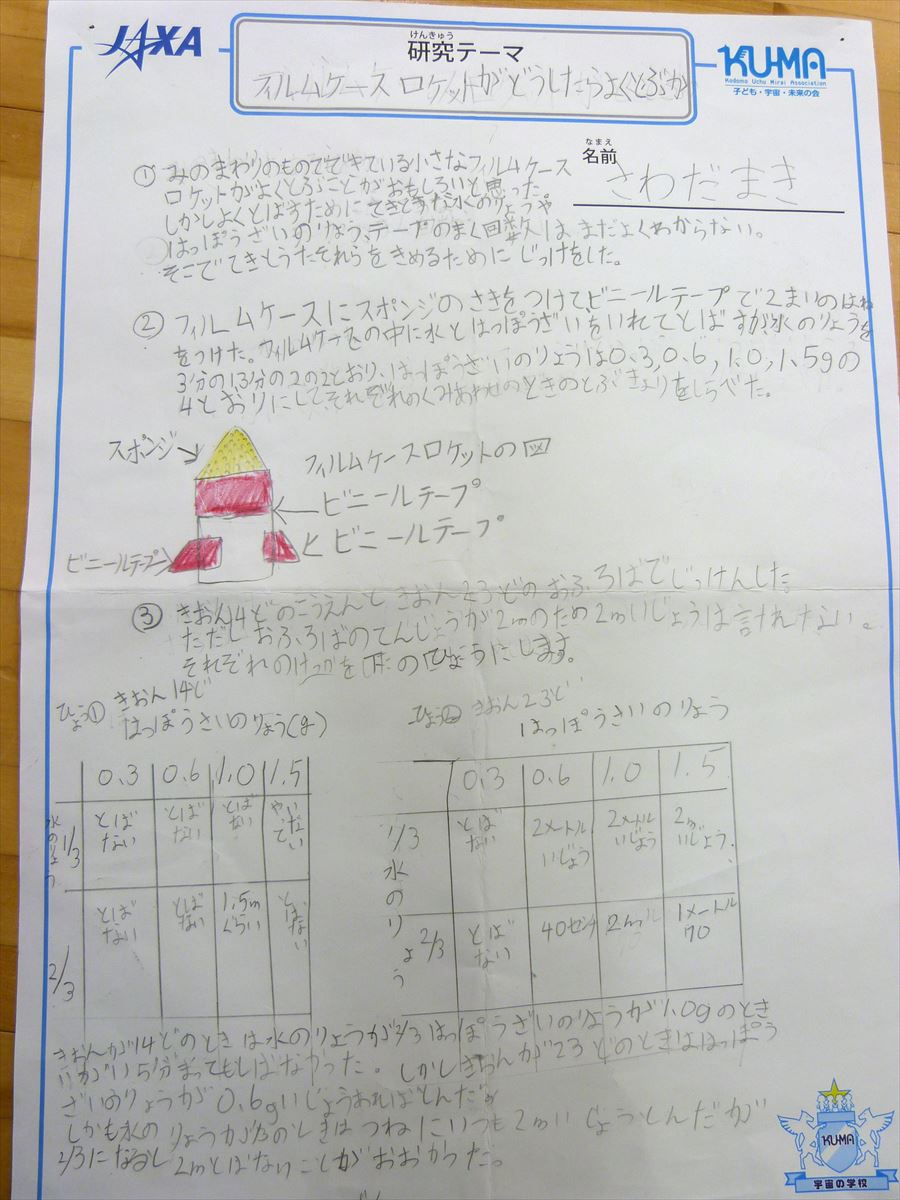 JAXA
けんきゅう
研究テーマ
フィルムケースロケットがどうしたらよくとぶか
KU-MA
Kodomo Uchu Mirai Association
子ども・宇宙・未来の会
なまえ
名前
さわだまき
① みのまわりのものでできている小さなフィルムケース
ロケットがよくとぶことがおもしろいと思った。
しかしよくとばすためにてきとうな水のりょうや
はっぽうざいのりょう、テープのまく回数はまだよくわからない。
そこでてきとうなそれらをきめるためにじっけをした。
② フィルムケースにスポンジのさきをつけて、ビニールテープで2まいのはね
をつけた。フィルムケースの中に水とはっぽうざいをいれてとばすが水のりょうを
3分の1,3分の2の2とおり、はっぽうざいのりょうは0.3,0.6,1.0,1.5gの
4とおりにしてそれぞれのくみあわせのときのとぶきょりをしらべた。
スポンジ
フィルムケースロケットの図
ビニールテープ
ビニールテープ
ビニールテープ
③ きおん14どのこうえんときおん23どのおふろばでじっけんした
ただしおふろばのてんじょうが2mのため2mいじょうは計れない。
それぞれのけっかを下のひょうにします。
ひょう① きおん14ど
はっぽうさいのりょう(g)
0.3 0.6 1.0 1.5
水のりょう 1/3 とばない とばない とばない
2/3 とばない とばない 1.5mぐらい とばない
ひょう② きおん23ど
はっぽうさいのりょう
0.3 0.6 1.0 1.5
水のりょう
1/3 とばない 2メートルいじょう 2メートルいじょう 2mいじょう
2/3 とばない 40センチ 2m 1メートル70
きおんが14どのときは水のりょうが2/3はっぽうざいのりょうが1.0gのとき
いがい5分まってもとばなかった。しかしきおんが23どのときははっぽう
ざいのりょうが0.6gいじょうあればとんだ。
しかも水のりょうが1/3のときはつねにいつも2mいじょうとんだが
2/3になると2mとばないことがおおかった。
KU-MA
宇宙の学校